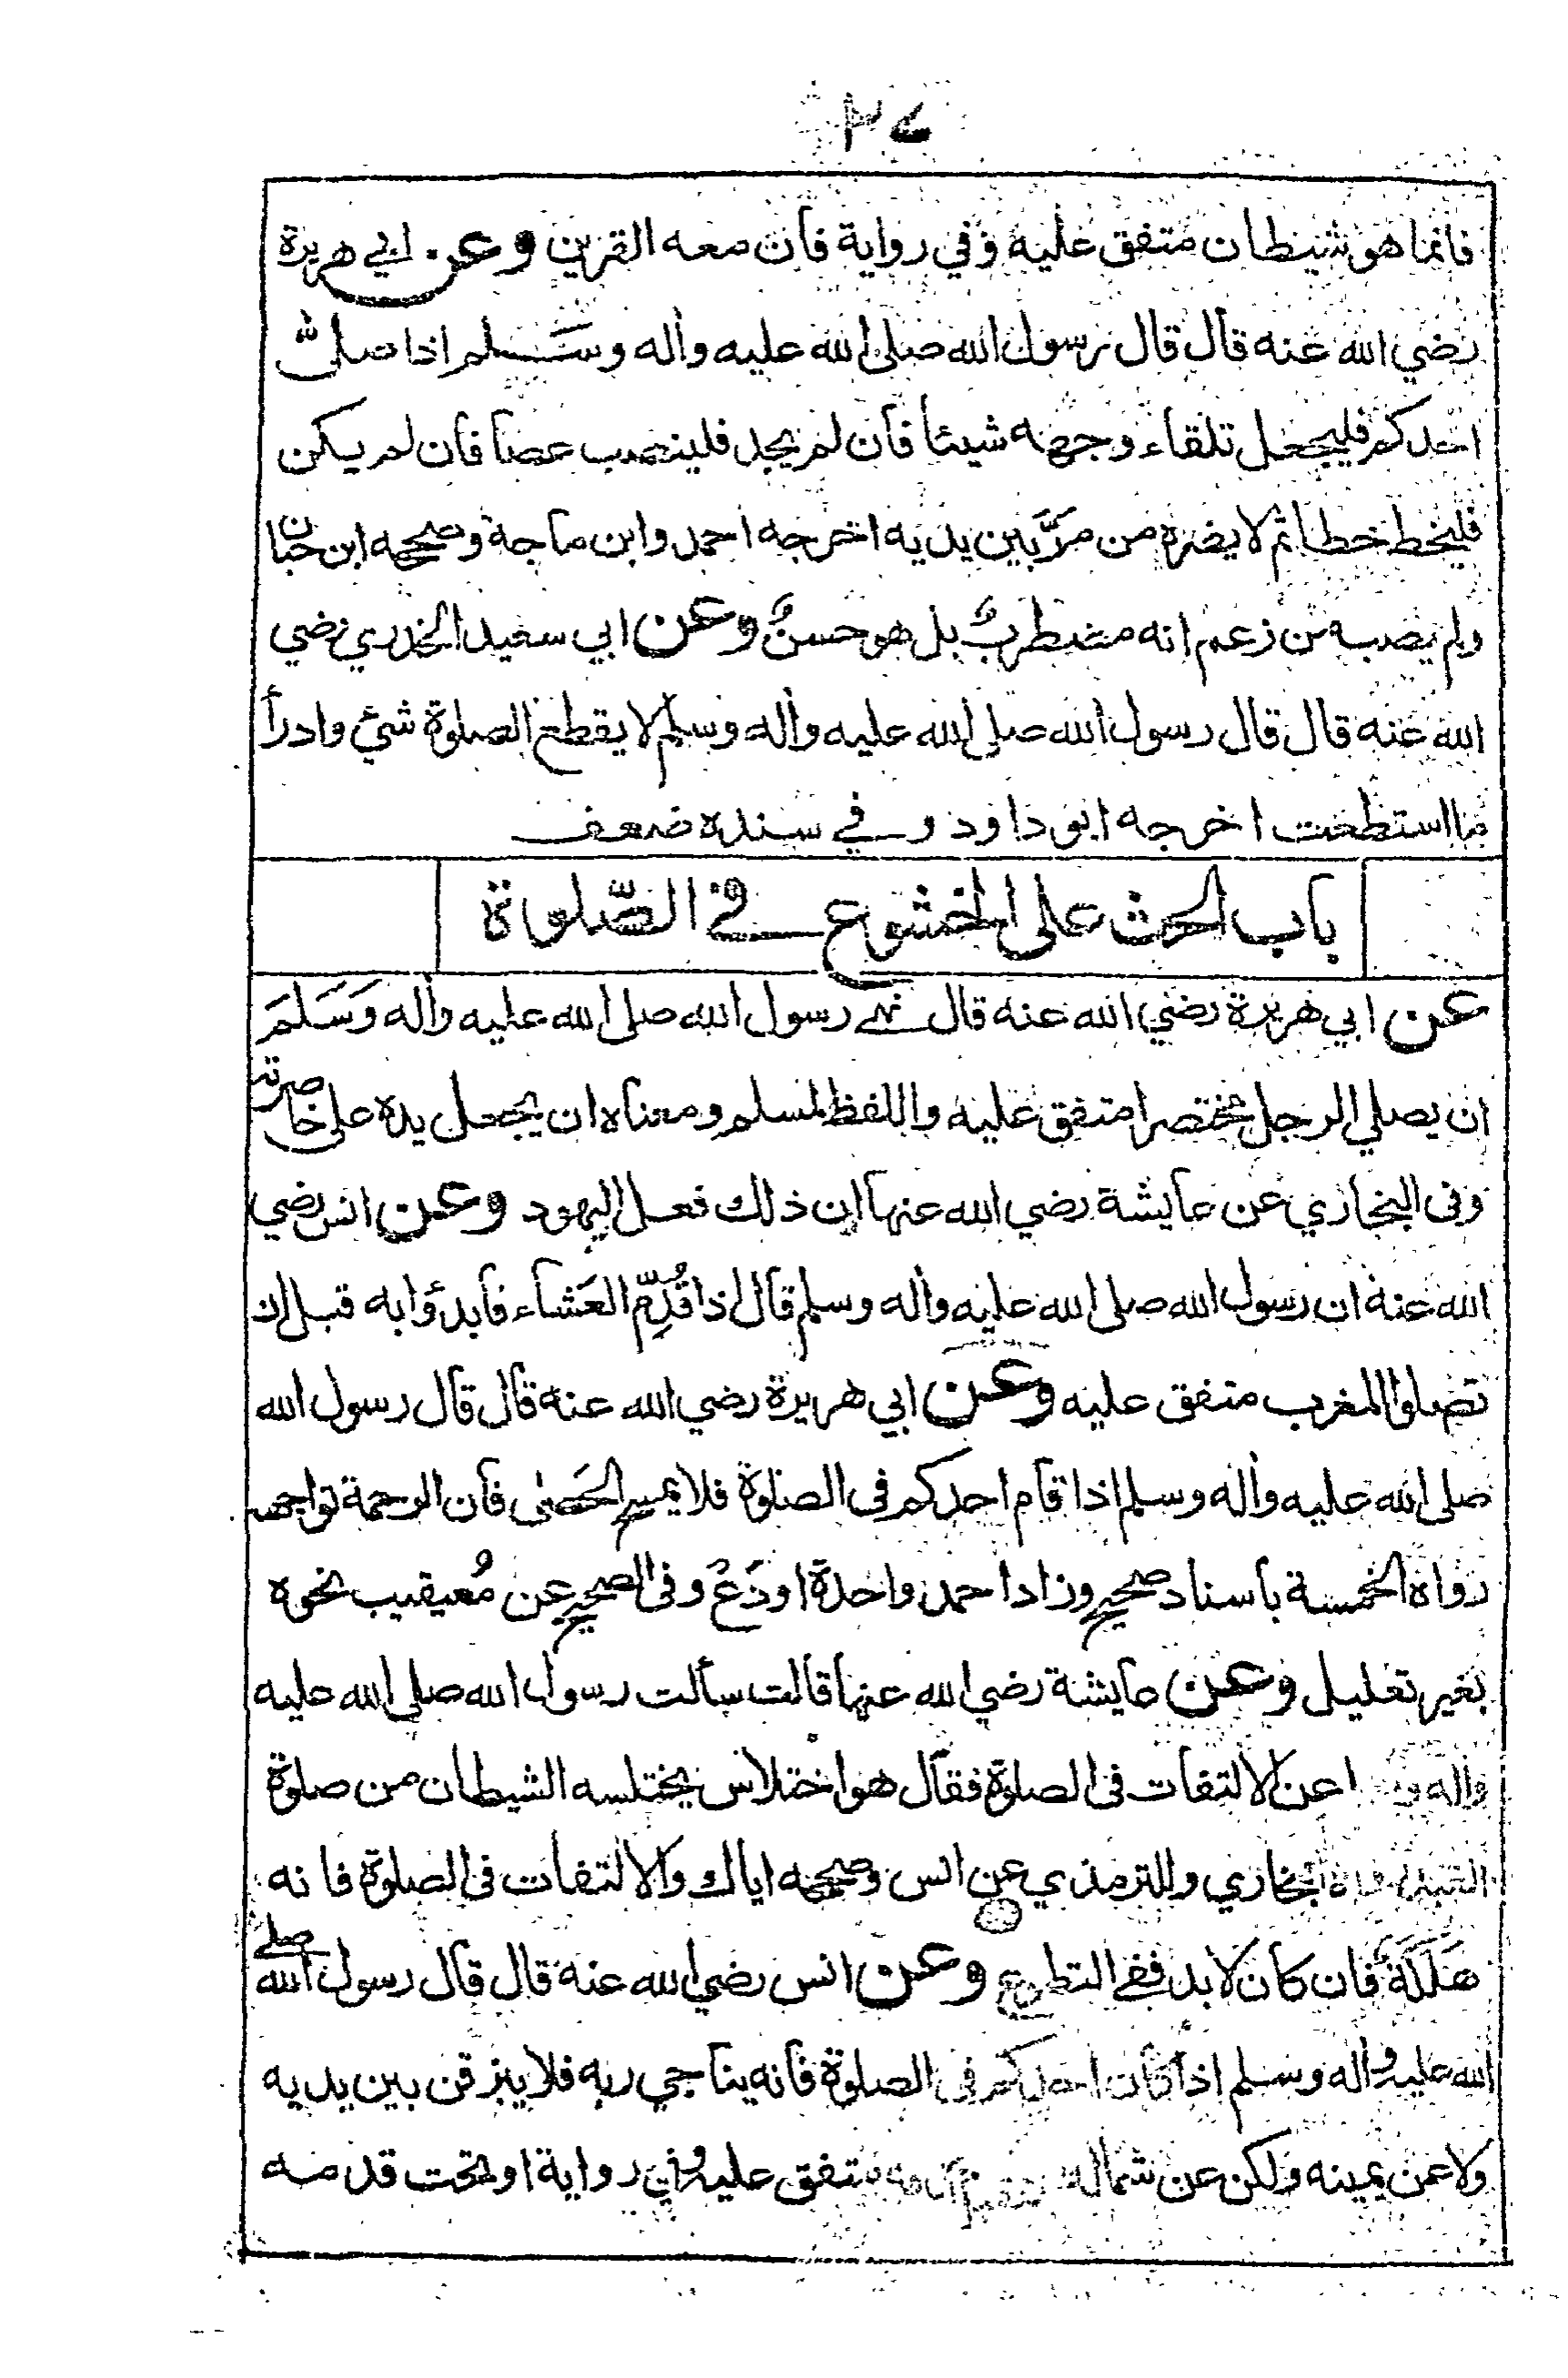 ٣٤
فانما هو شيطان متفق عليه وفي رواية فان معه القرين وعن ابي هريرة
رضي الله عنه قال قال رسول الله صلى الله عليه واله وسلم اذا صلى
احدكم فليجعل تلقاء وجهه شيئا فان لم يجد فلينصب عصا فان لم يكن
فليخط خطا ثم لا يضره من مرَّ بين يديه اخرجه احمد وابن ماجة وصححه ابن حبان
ولم يصب من زعم انه مضطربٌ بل هو حسنٌ وعن ابي سعيد الخدري رضي
الله عنه قال قال رسول الله صلى الله عليه واله وسلم لا يقطع الصلوة شئ وادرأ
ما استطعت اخرجه ابو داود وفي سنده ضعف
باب الحث على الخشوع في الصّلوة
عن ابي هريرة رضي الله عنه قال نهى رسول الله صلى الله عليه واله وَسَلمَ
ان يصلي الرجل مختصرا متفق عليه واللفظ لمسلم ومعناه ان يجعل يده على خاصرته
وفى البخاري عن عايشة رضي الله عنها ان ذلك فعل اليهود وعن انس رضي
الله عنه ان رسول الله صلى الله عليه واله وسلم قال اذا قُدِّم العَشاء فابدؤا به قبل ان
تصلوا المغرب متفق عليه وعن ابي هريرة رضي الله عنه قال قال رسول الله
صلى الله عليه واله وسلم اذا قام احدكم فى الصلوة فلا يمسح الحَصى فان الرحمة تواجهه
رواه الخمسة باسناد صحيح وزاد احمد واحدة او دَعْ وفى الصحيح عن مُعيقيب نحوه
بغير تعليل وعن عايشة رضي الله عنها قالت سألت رسول الله صلى الله عليه
واله عن الالتفات فى الصلوة فقال هو اختلاس يختلسه الشيطان من صلوة
العبد رواه البخاري وللترمذي عن انس وصححه اياك والالتفات فى الصلوة فانه
هَلَكَةٌ فان كان لا بد ففي التطوع وعن انس رضي الله عنه قال قال رسول الله صلى
الله عليه واله وسلم اذا كان احدكم فى الصلوة فانه يناجي ربه فلا يبزقن بين يديه
ولا عن يمينه ولكن عن شماله متفق عليه وفي رواية او تحت قدمه